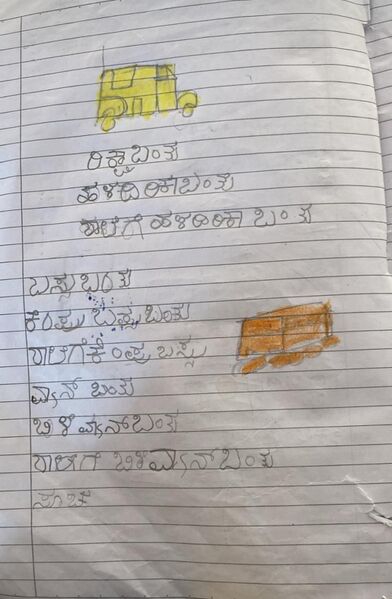 ರಿಕ್ಷಾ ಬಂತು
ಹಳದಿ ರಿಕಾ ಬಂತು
ಶಾಲೆಗೆ ಹಳದಿ ರಿಕಾ ಬಂತು
ಬಸ್ಸು ಬಂತು
ಕೆಂಪು ಬಸ್ಸು ಬಂತು
ಶಾಲೆಗೆ ಕೆಂಪು ಬಸ್ಸು
ವ್ಯಾನ್ ಬಂತು
ಬಿಳಿ ವ್ಯಾನ್ ಬಂತು
ಶಾಲೆಗೆ ಬಿಳಿ ವ್ಯಾನ್ ಬಂತು